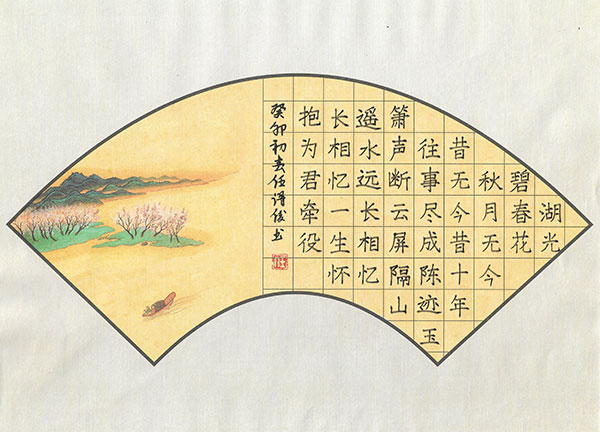 湖光
碧春花
秋月无今
昔无今昔十年
往事尽成陈迹玉
箫声断云屏隔山
遥水远长相忆
长相忆一生怀
抱为君牵役
癸卯初春任书